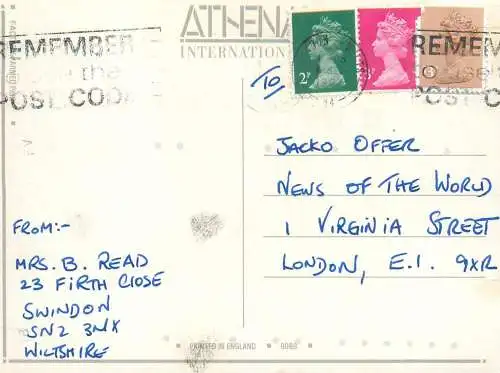 ATHENA
INTERNATIONAL
REMEMBER
the
POST CODE
2P
REMEM
POST CO
TO
JACKO OFFER
NEWS OF THE WORLD
1 VIRGINIA STREET
LONDON, E.1. 9XR
FROM:-
MRS. B. READ
23 FIRTH CLOSE
SWINDON
SN2 3NX
WILTSHIRE
PRINTED IN ENGLAND